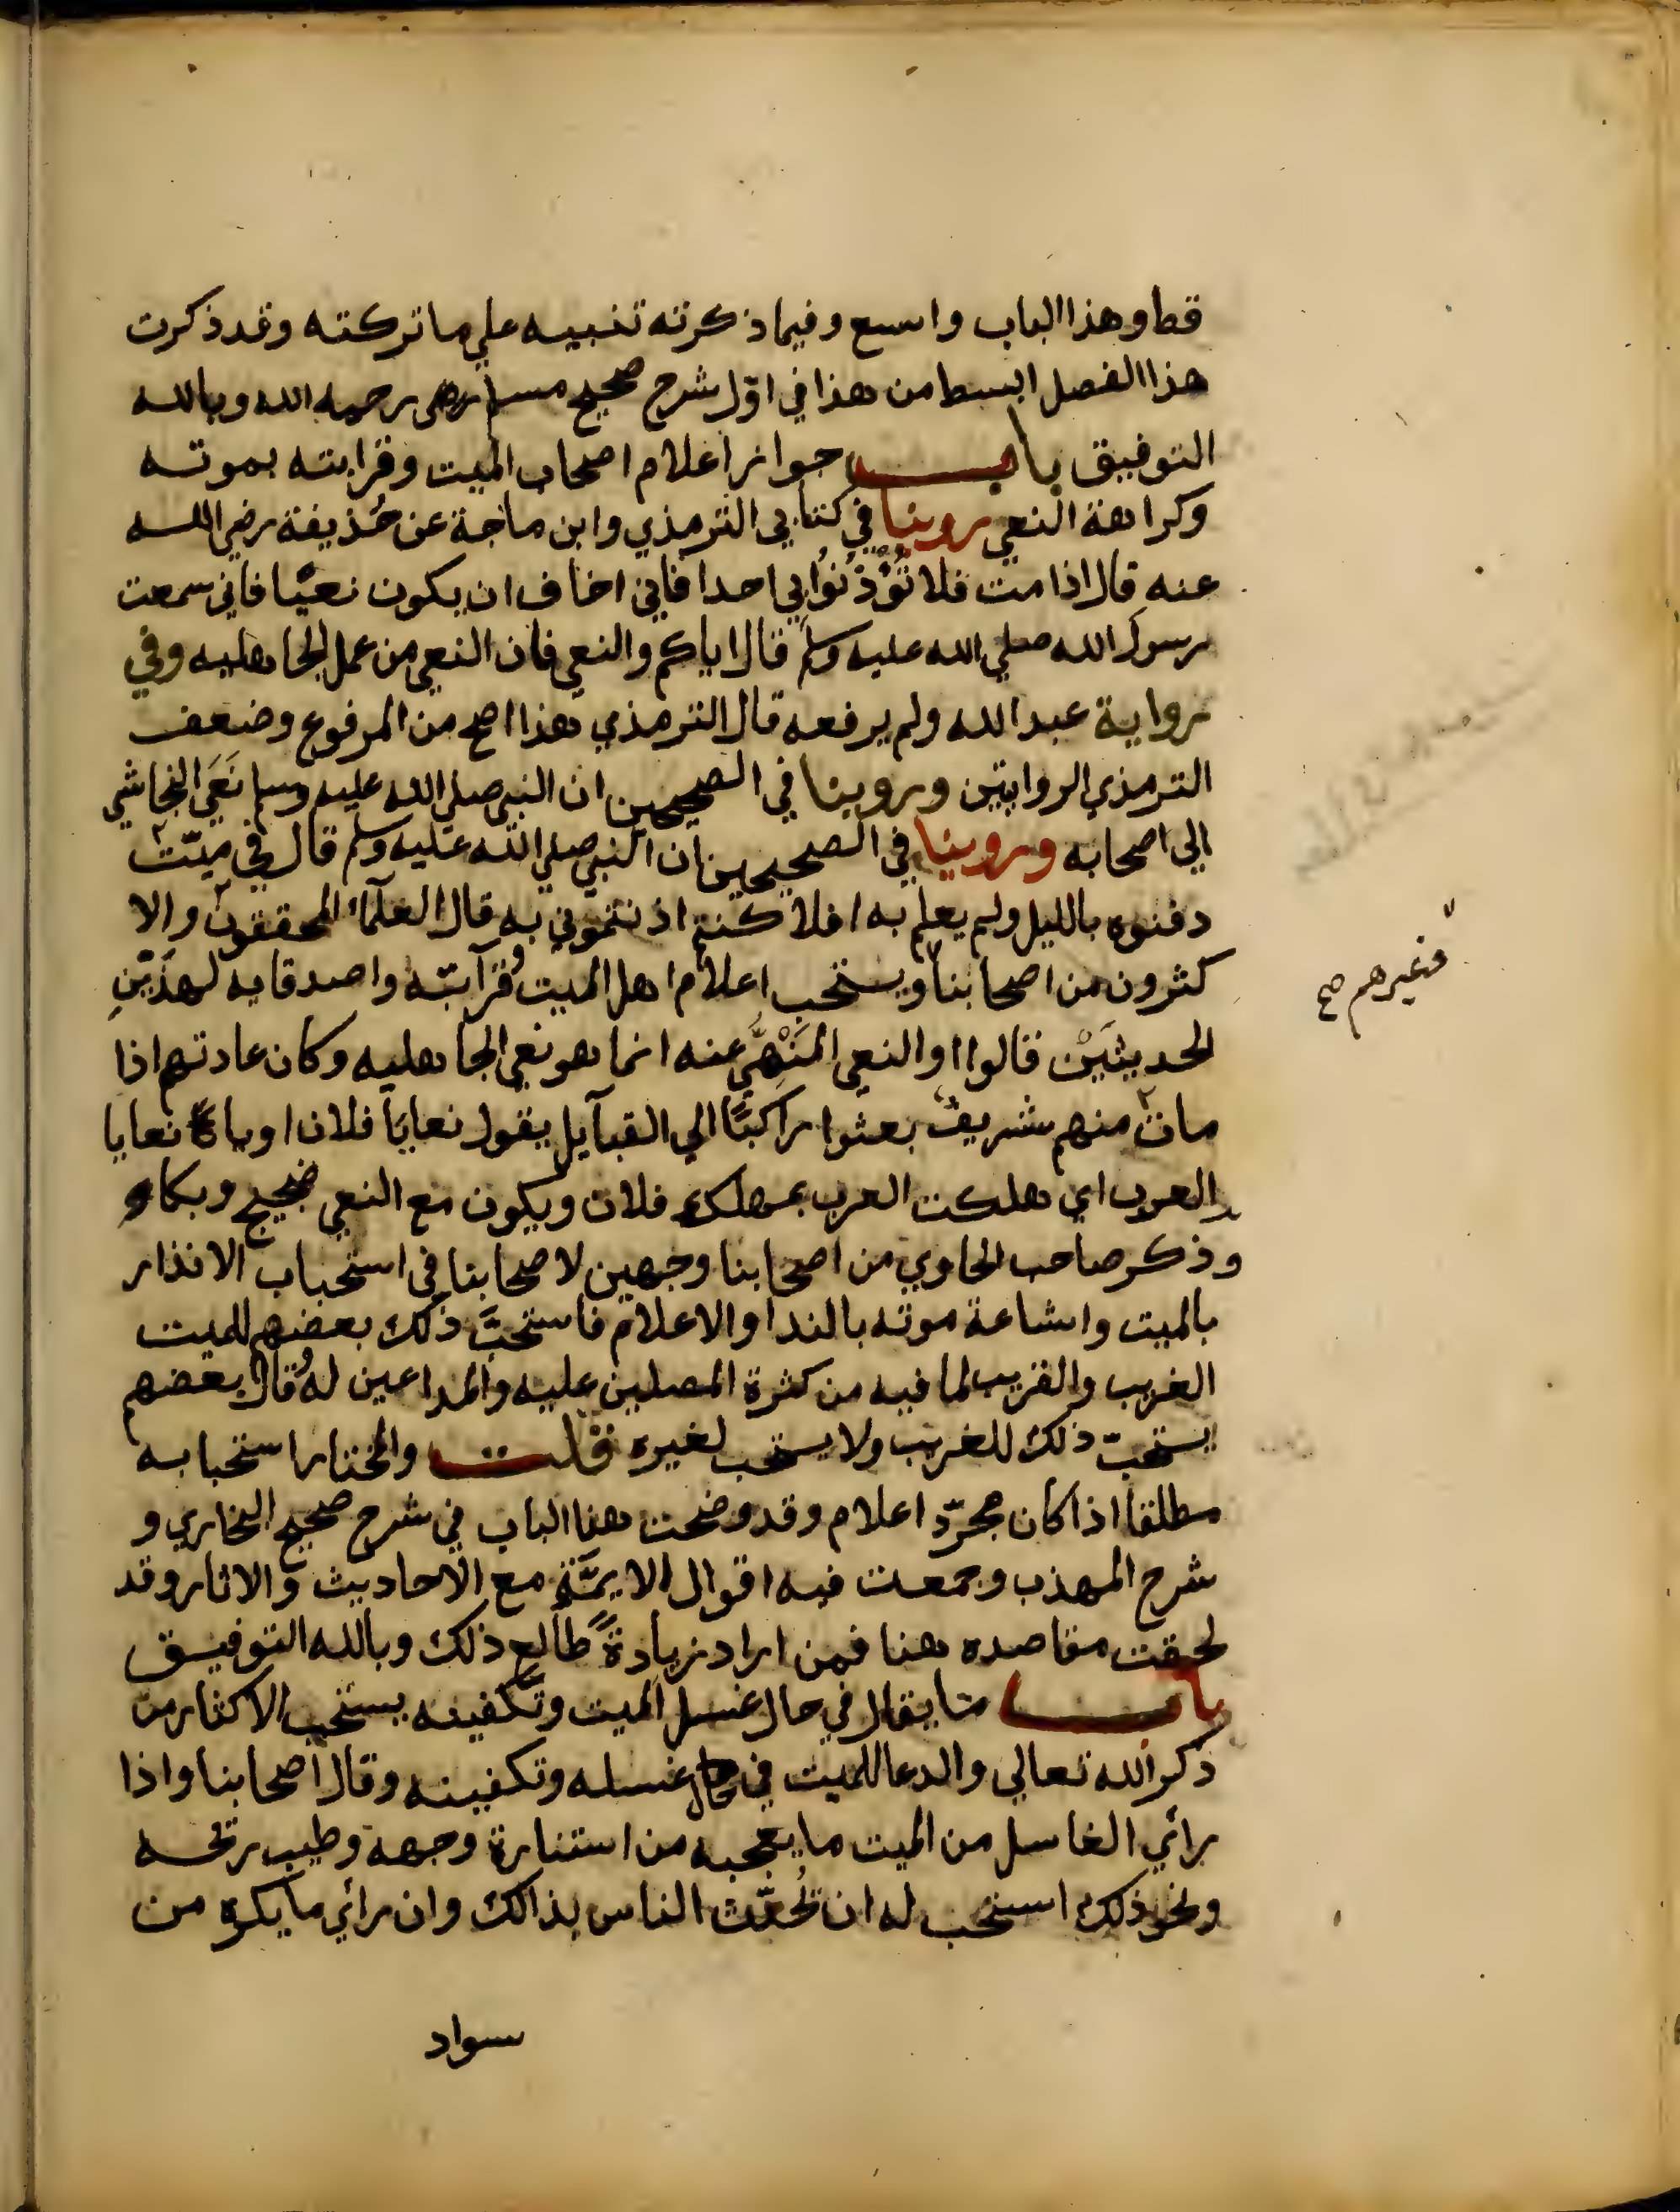 قط وهذا الباب واسع وفيما ذكرته تنبيه علي ما تركته وقد ذكرت
هذا الفصل ابسط من هذا في اوّل شرح صحيح مسلم رحمه الله وبالله
التوفيق باب جواز اعلام اصحاب الميت وقرابته بموته
وكراهة النعي روينا في كتابي الترمذي وابن ماجة عن حُذيفة رضي الله
عنه قال اذا مت فلا تُؤْذنُوا بي احدا فاني اخاف ان يكون نعيًا فاني سمعت
رسول الله صلي الله عليه وسلم قال اياكم والنعي فان النعي من عمل الجاهليه وفي
رواية عبد الله ولم يرفعه قال الترمذي هذا اصح من المرفوع وضعف
الترمذي الروايتين وروينا في الصحيحين ان النبي صلي الله عليه وسلم نَعَي النجاشي
الي اصحابه وروينا في الصحيحين ان النبي صلي الله عليه وسلم قال في ميّت
دفنوه بالليل ولم يعلم به افلا كنتم اذنتموني به قال العلمآء المحققون والا
كثرون من اصحابنا ويستحب اعلام اهل الميت وقرآبتِه واصدقايه لهذَيْنِ
الحديثَيْن قالوا والنعي المَنْهيُّ عنه انما هو نعي الجاهليه وكان عادتهم اذا
مات منهم شريفٌ بعثوا راكبًا الي القبآيل يقول نعايَا فلان او يا نعايا
العرب اي هلكت العرب بمهلك فلان ويكون مع النعي ضجيج وبكاء
وذكر صاحب الحاوي من اصحابنا وجهين لاصحابنا في استحباب الانذار
بالميت واشاعة موته بالندا والاعلام فاستحبَّ ذلك بعضهم للميت
الغريب والقريب لما فيه من كثرة المصلين عليه والمداعين له وقال بعضهم
يستحبّ ذلك للغريب ولا يستحب لغيره قلت والمختار استحبابه
مطلقا اذا كان مجرّد اعلام وقد وضحت هذا الباب في شرح صحيح البخاري و
شرح المهذب وجمعت فيه اقوال الايمَّة مع الاحاديث والاثار وقد
لحقت مقاصده هنا فمن اراد زيادةً طالع ذلك وبالله التوفيق
باب ما يقال في حال غسل الميت وتكفينه يستحب الاكثار من
ذكر الله تعالي والدعا للميت في حال غسله وتكفينه وقال اصحابنا واذا
رأي الغاسل من الميت ما يعجبه من استنارة وجهه وطيب ريحه
ونحو ذلك استحب له ان يُحدّث الناس بذالك وان رأي ما يكره من
سواد
وغيرهم صح